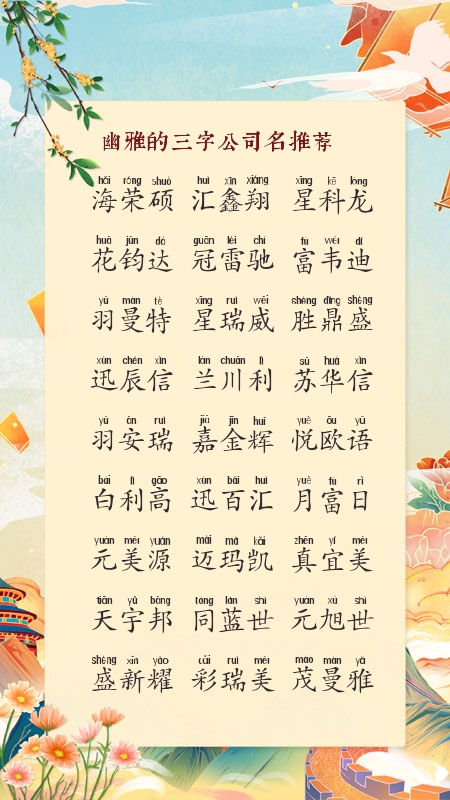 幽雅的三字公司名推荐
hǎi róng shuò huì xīn xiáng xīng kē lóng
海荣硕 汇鑫翔 星科龙
huā jūn dá guān léi chí fù wéi dí
花钧达 冠雷驰 富韦迪
yǔ màn tè xīng ruì wēi shèng dǐng shèng
羽曼特 星瑞威 胜鼎盛
xùn chén xìn lán chuān lì sū huá xìn
迅辰信 兰川利 苏华信
yǔ ān ruì jiā jīn huī yuè ōu yǔ
羽安瑞 嘉金辉 悦欧语
bái lì gāo xùn bǎi huì yuè fù rì
白利高 迅百汇 月富日
yuán měi yuán mài mǎ kǎi zhēn yí měi
元美源 迈玛凯 真宜美
tiān yǔ bāng tóng lán shì yuán xù shì
天宇邦 同蓝世 元旭世
shèng xīn yào cǎi ruì měi mào màn yǎ
盛新耀 彩瑞美 茂曼雅